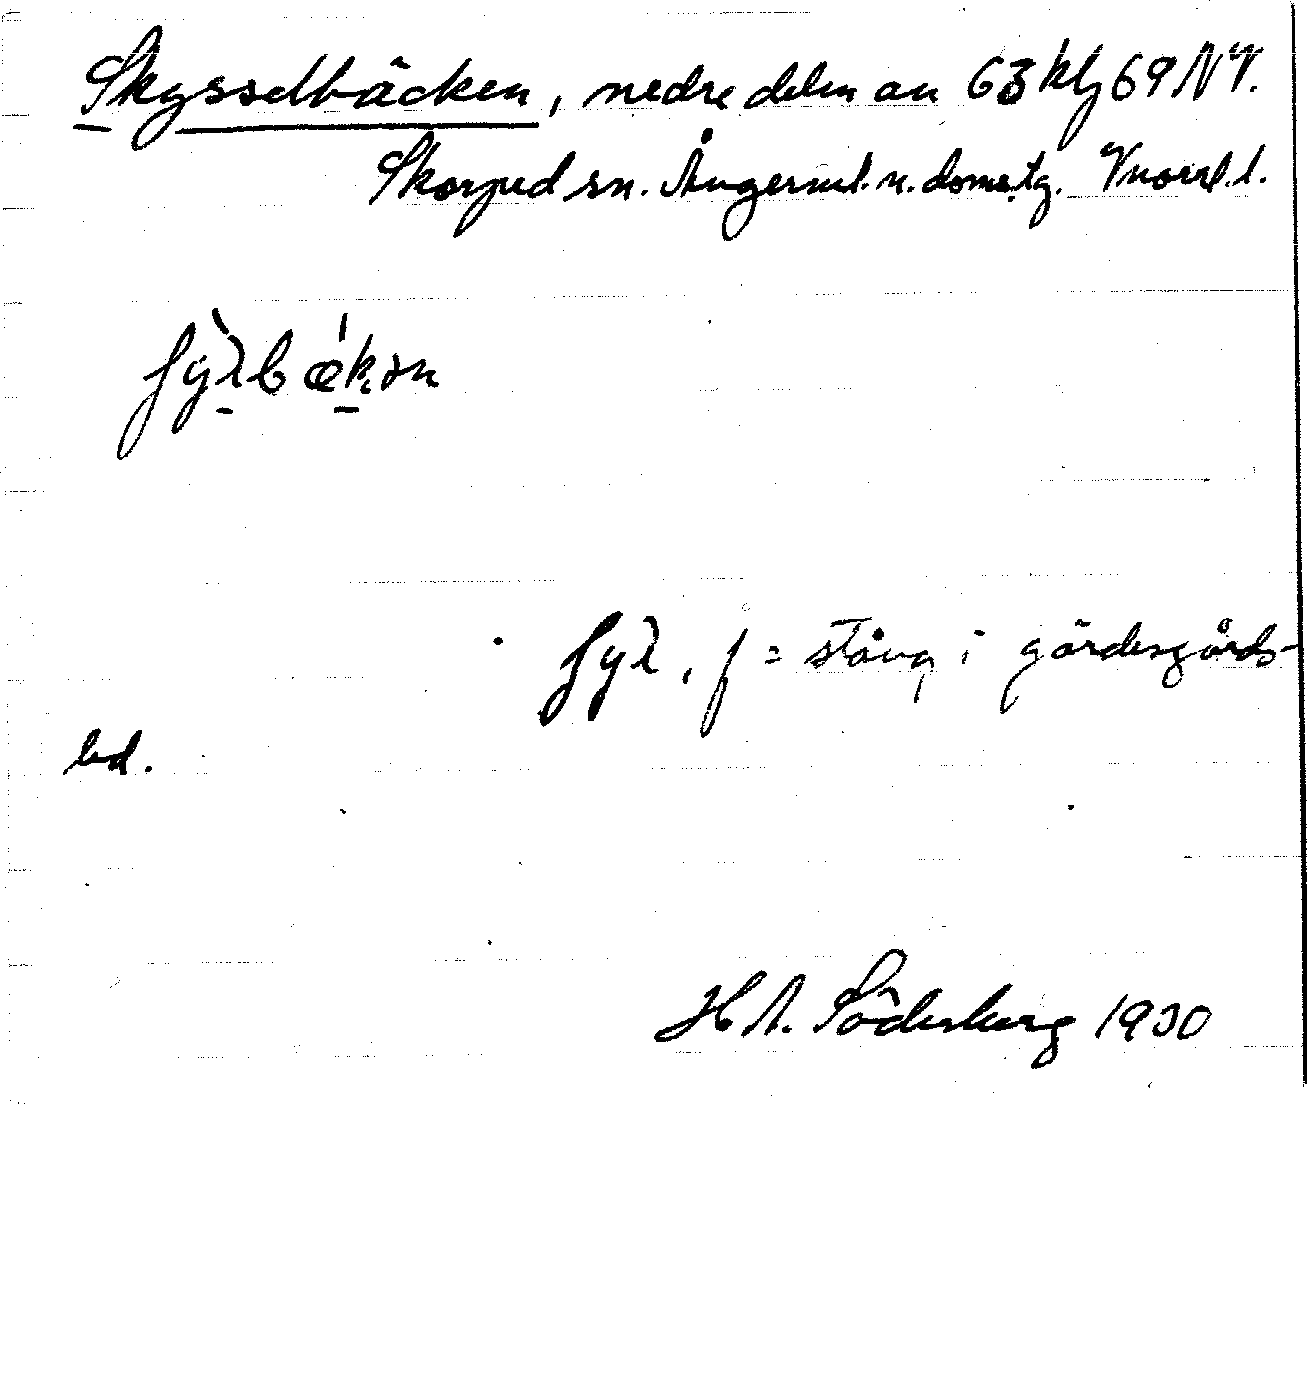 Skysselbäcken, nedre delen av 63 klg 69 NV.
Skorped sn. Ångerml. n. doms.tg. Vnorrl. l.
ʃỳλbǽkən
ʃyλ, f = stång i gärdesgårds-
led.
H A. Söderberg 1930